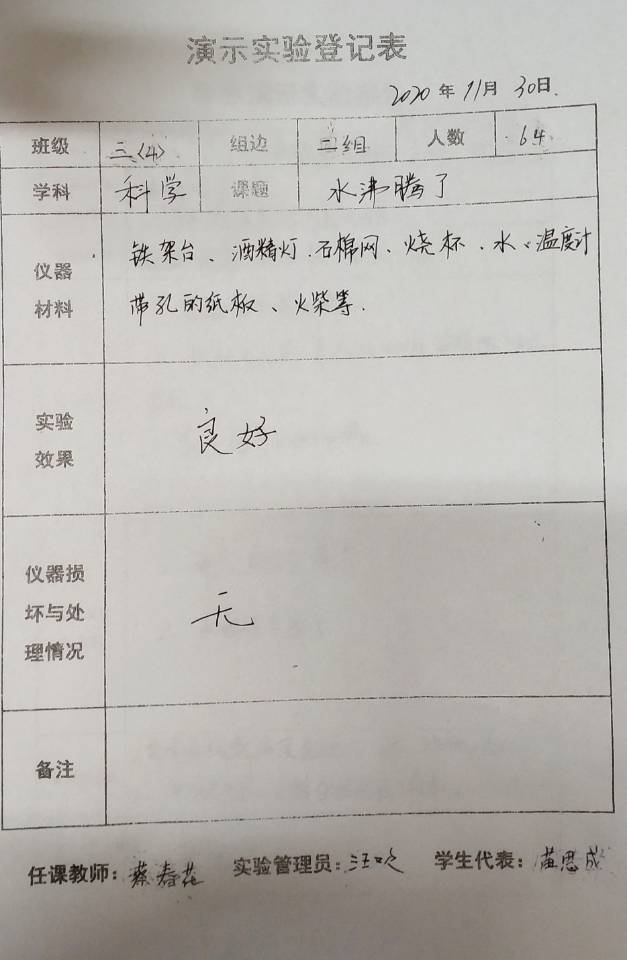 演示实验登记表
2020年11月30日.
班级 三〈4〉 组边 二组 人数 64
学科 科学 课题 水沸腾了
仪器材料 铁架台、酒精灯.石棉网、烧杯、水、温度计
带孔的纸板、火柴等.
实验效果 良好
仪器损坏与处理情况 无
备注
任课教师:蔡春花 实验管理员: 学生代表:思成